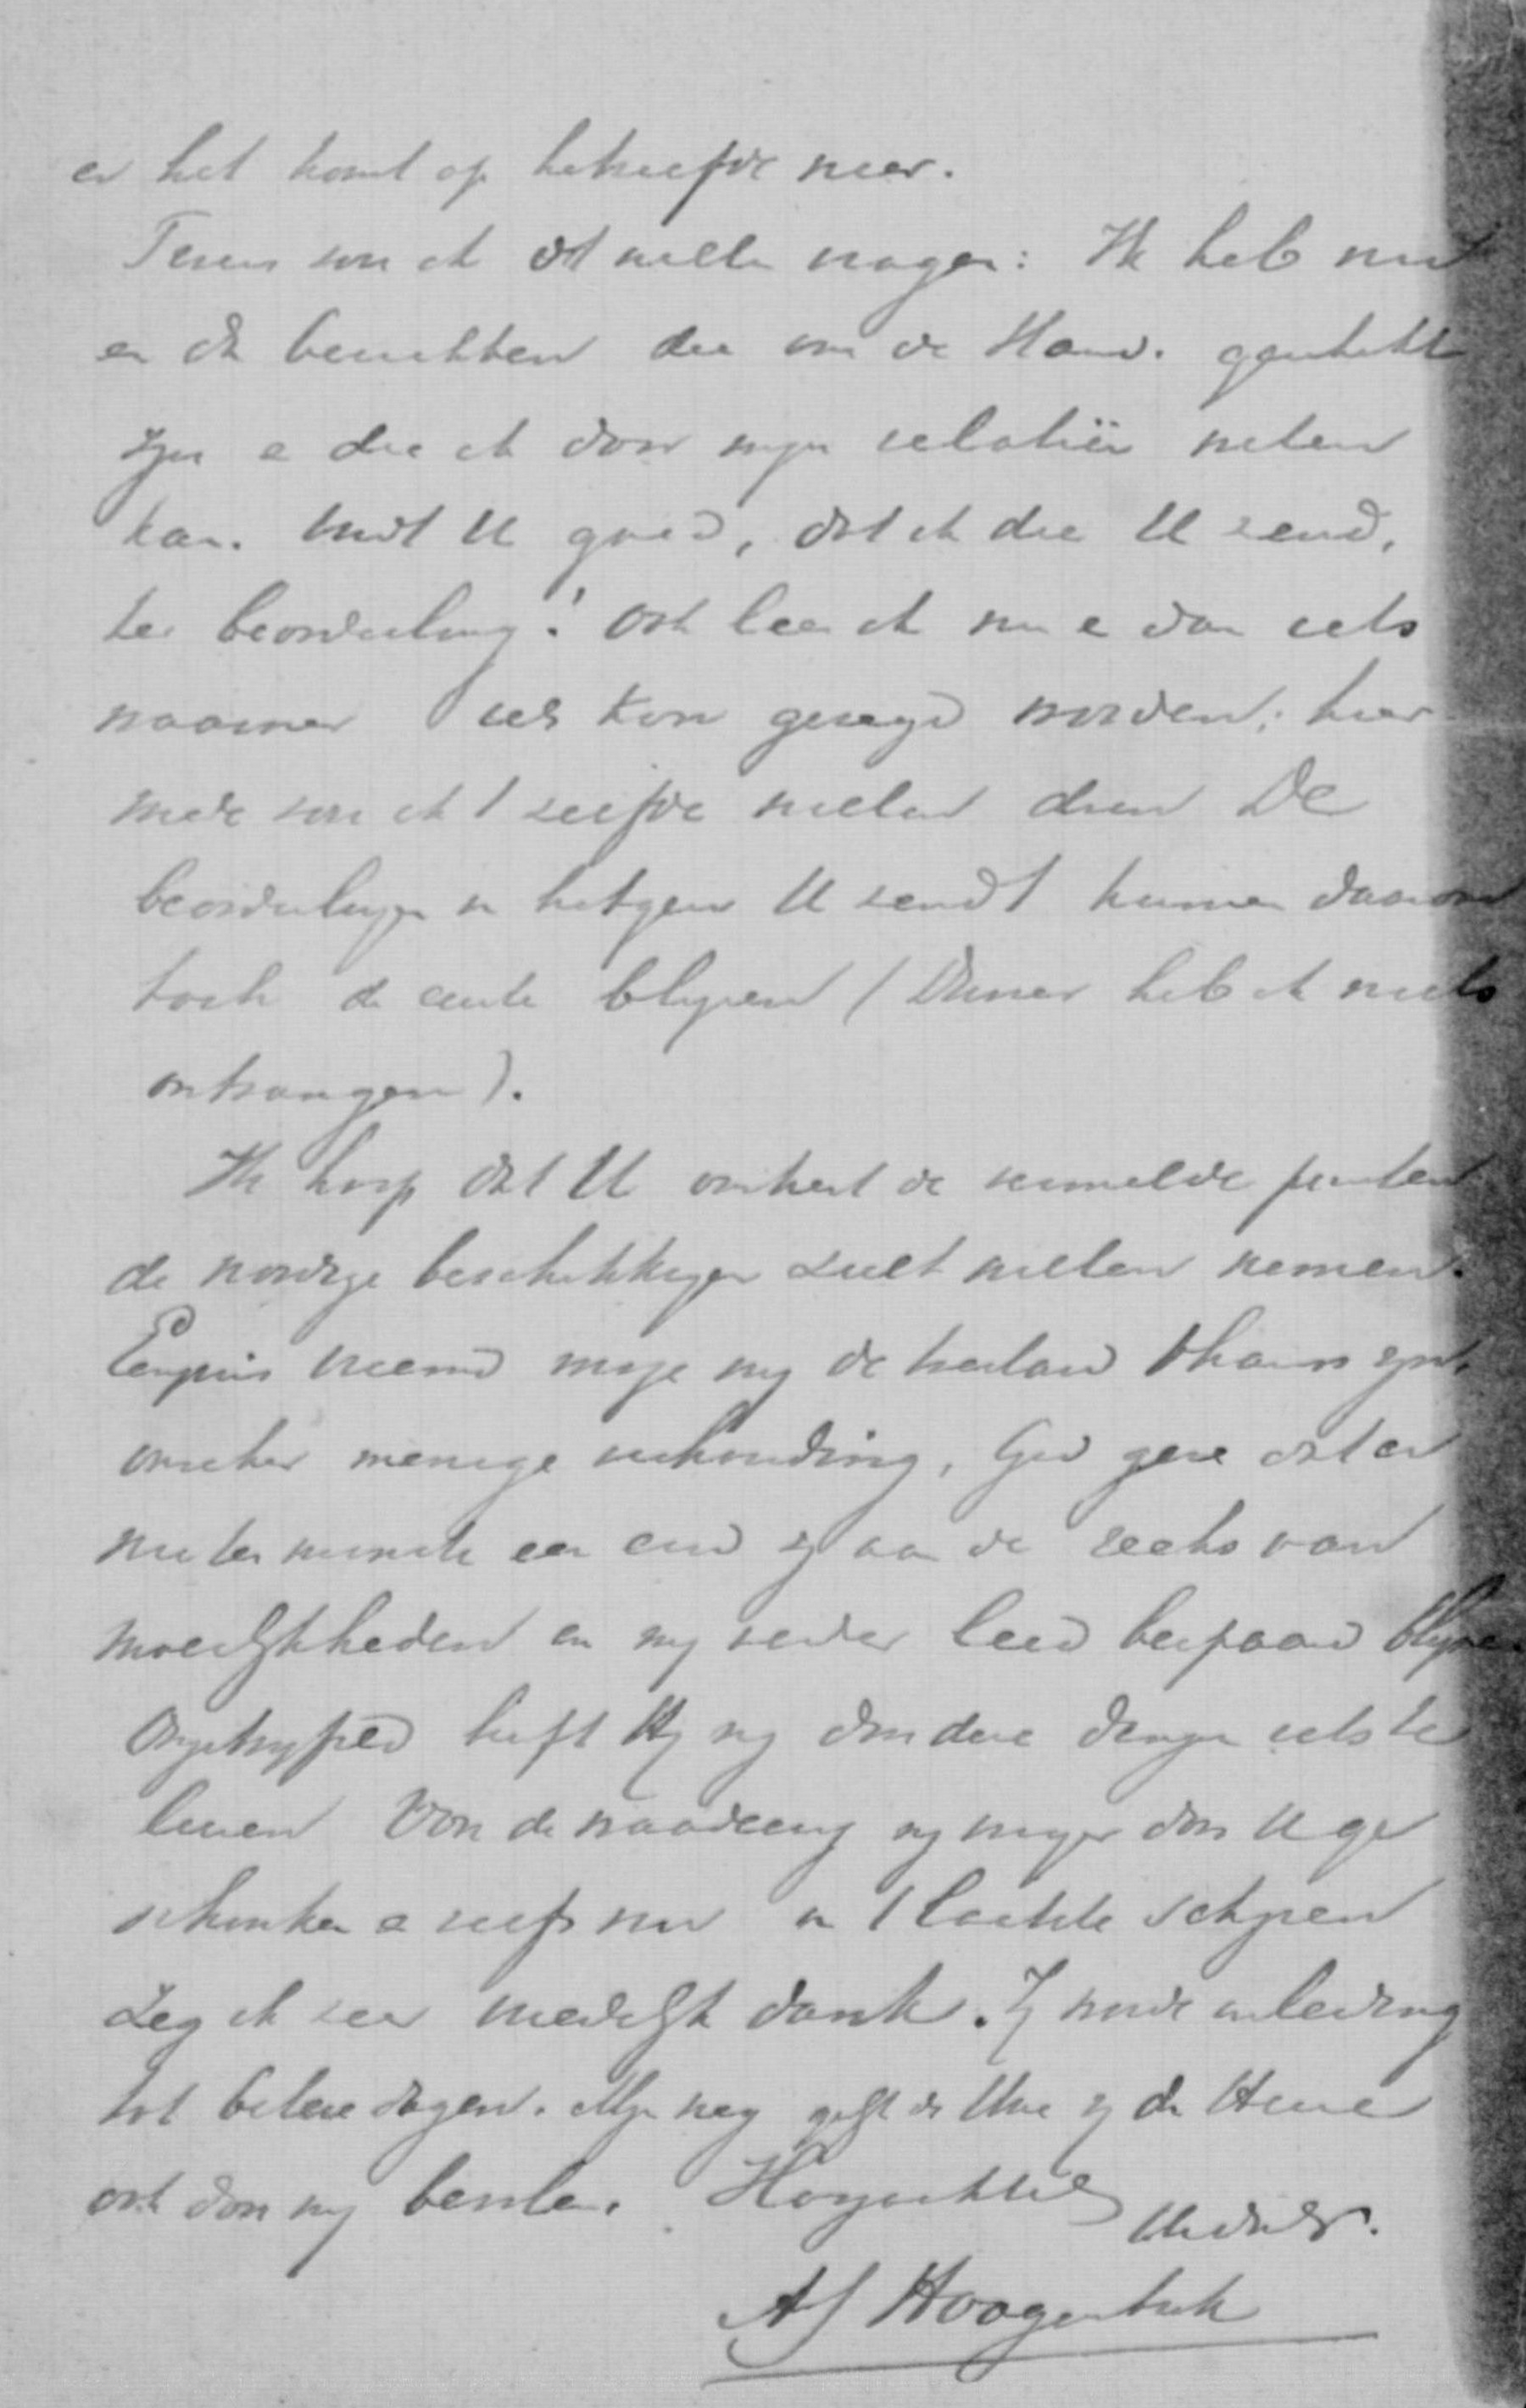 en het komt op hetzelfde neer.
Tevens zou ik dit willen vragen: Ik heb nu
en dan berichten die voor de Hand. geschikt
zijn en die ik door mijn relatiën weten
kan. Vindt U goed, dat ik die U zend,
ter beoordeling? Ook lees ik nu en dan iets
waarover iets kon gezegd worden; hier
mede zou ik 't zelfde willen doen. De
beoordelingen in hetgeen U zendt kunnen daarom
toch de eerste blijven (Dezer heb ik niets
ontvangen).
Ik hoop dat U omtrent de vermelde punten
de noodige beschikkingen zult willen nemen.
Eenigszins vreemd moge mij de toestand thans zijn,
onzeker menige verhouding, God geve dat er
ten minste een eind zij aan de reeks van
moeilijkheden en mij verder leed bespaard blijve.
Ongetwijfeld heeft Hij mij door deze dingen iets te
leeren. Voor de waardeering mij door U ge
schonken en zelfs nu in 't laatste schrijven
zeg ik zeer vriendelijk dank. Zij worde inleiding
tot betere dagen. Mijn weg ligt de Uwe zij de Heere
ook door mij bevolen. Hoogachtend
Uw dw.
AJ Hoogenbirk